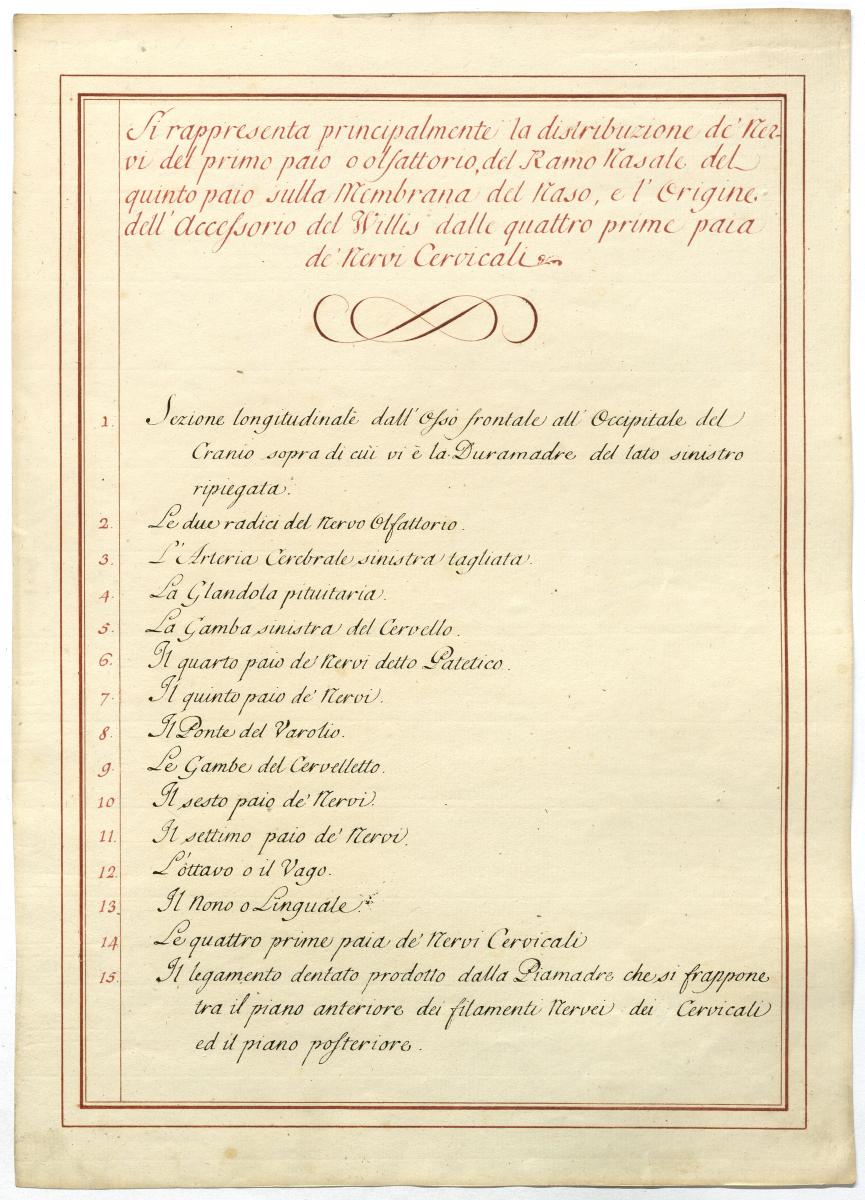 Si rappresenta principalmente la distribuzione de' Ner-
vi del primo paio o olfattorio, del Ramo Nasale del
quinto paio sulla Membrana del Naso, e l'Origine
dell'Accessorio del Willis dalle quattro prime paia
de' Nervi Cervicali
1. Sezione longitudinale dall'Osso frontale all'Occipitale del
Cranio sopra di cui vi è la Duramadre del lato sinistro
ripiegata.
2. Le due radici del Nervo Olfattorio.
3. L'Arteria Cerebrale sinistra tagliata.
4. La Glandola pituitaria.
5. La Gamba sinistra del Cervello.
6. Il quarto paio de' Nervi detto Patetico.
7. Il quinto paio de' Nervi.
8. Il Ponte del Varolio.
9. Le Gambe del Cervelletto.
10 Il sesto paio de' Nervi.
11. Il settimo paio de' Nervi.
12. L'ottavo o il Vago.
13. Il Nono o Linguale.
14 Le quattro prime paia de' Nervi Cervicali
15. Il legamento dentato prodotto dalla Piamadre che si frappone
tra il piano anteriore dei filamenti Nervei dei Cervicali
ed il piano posteriore.